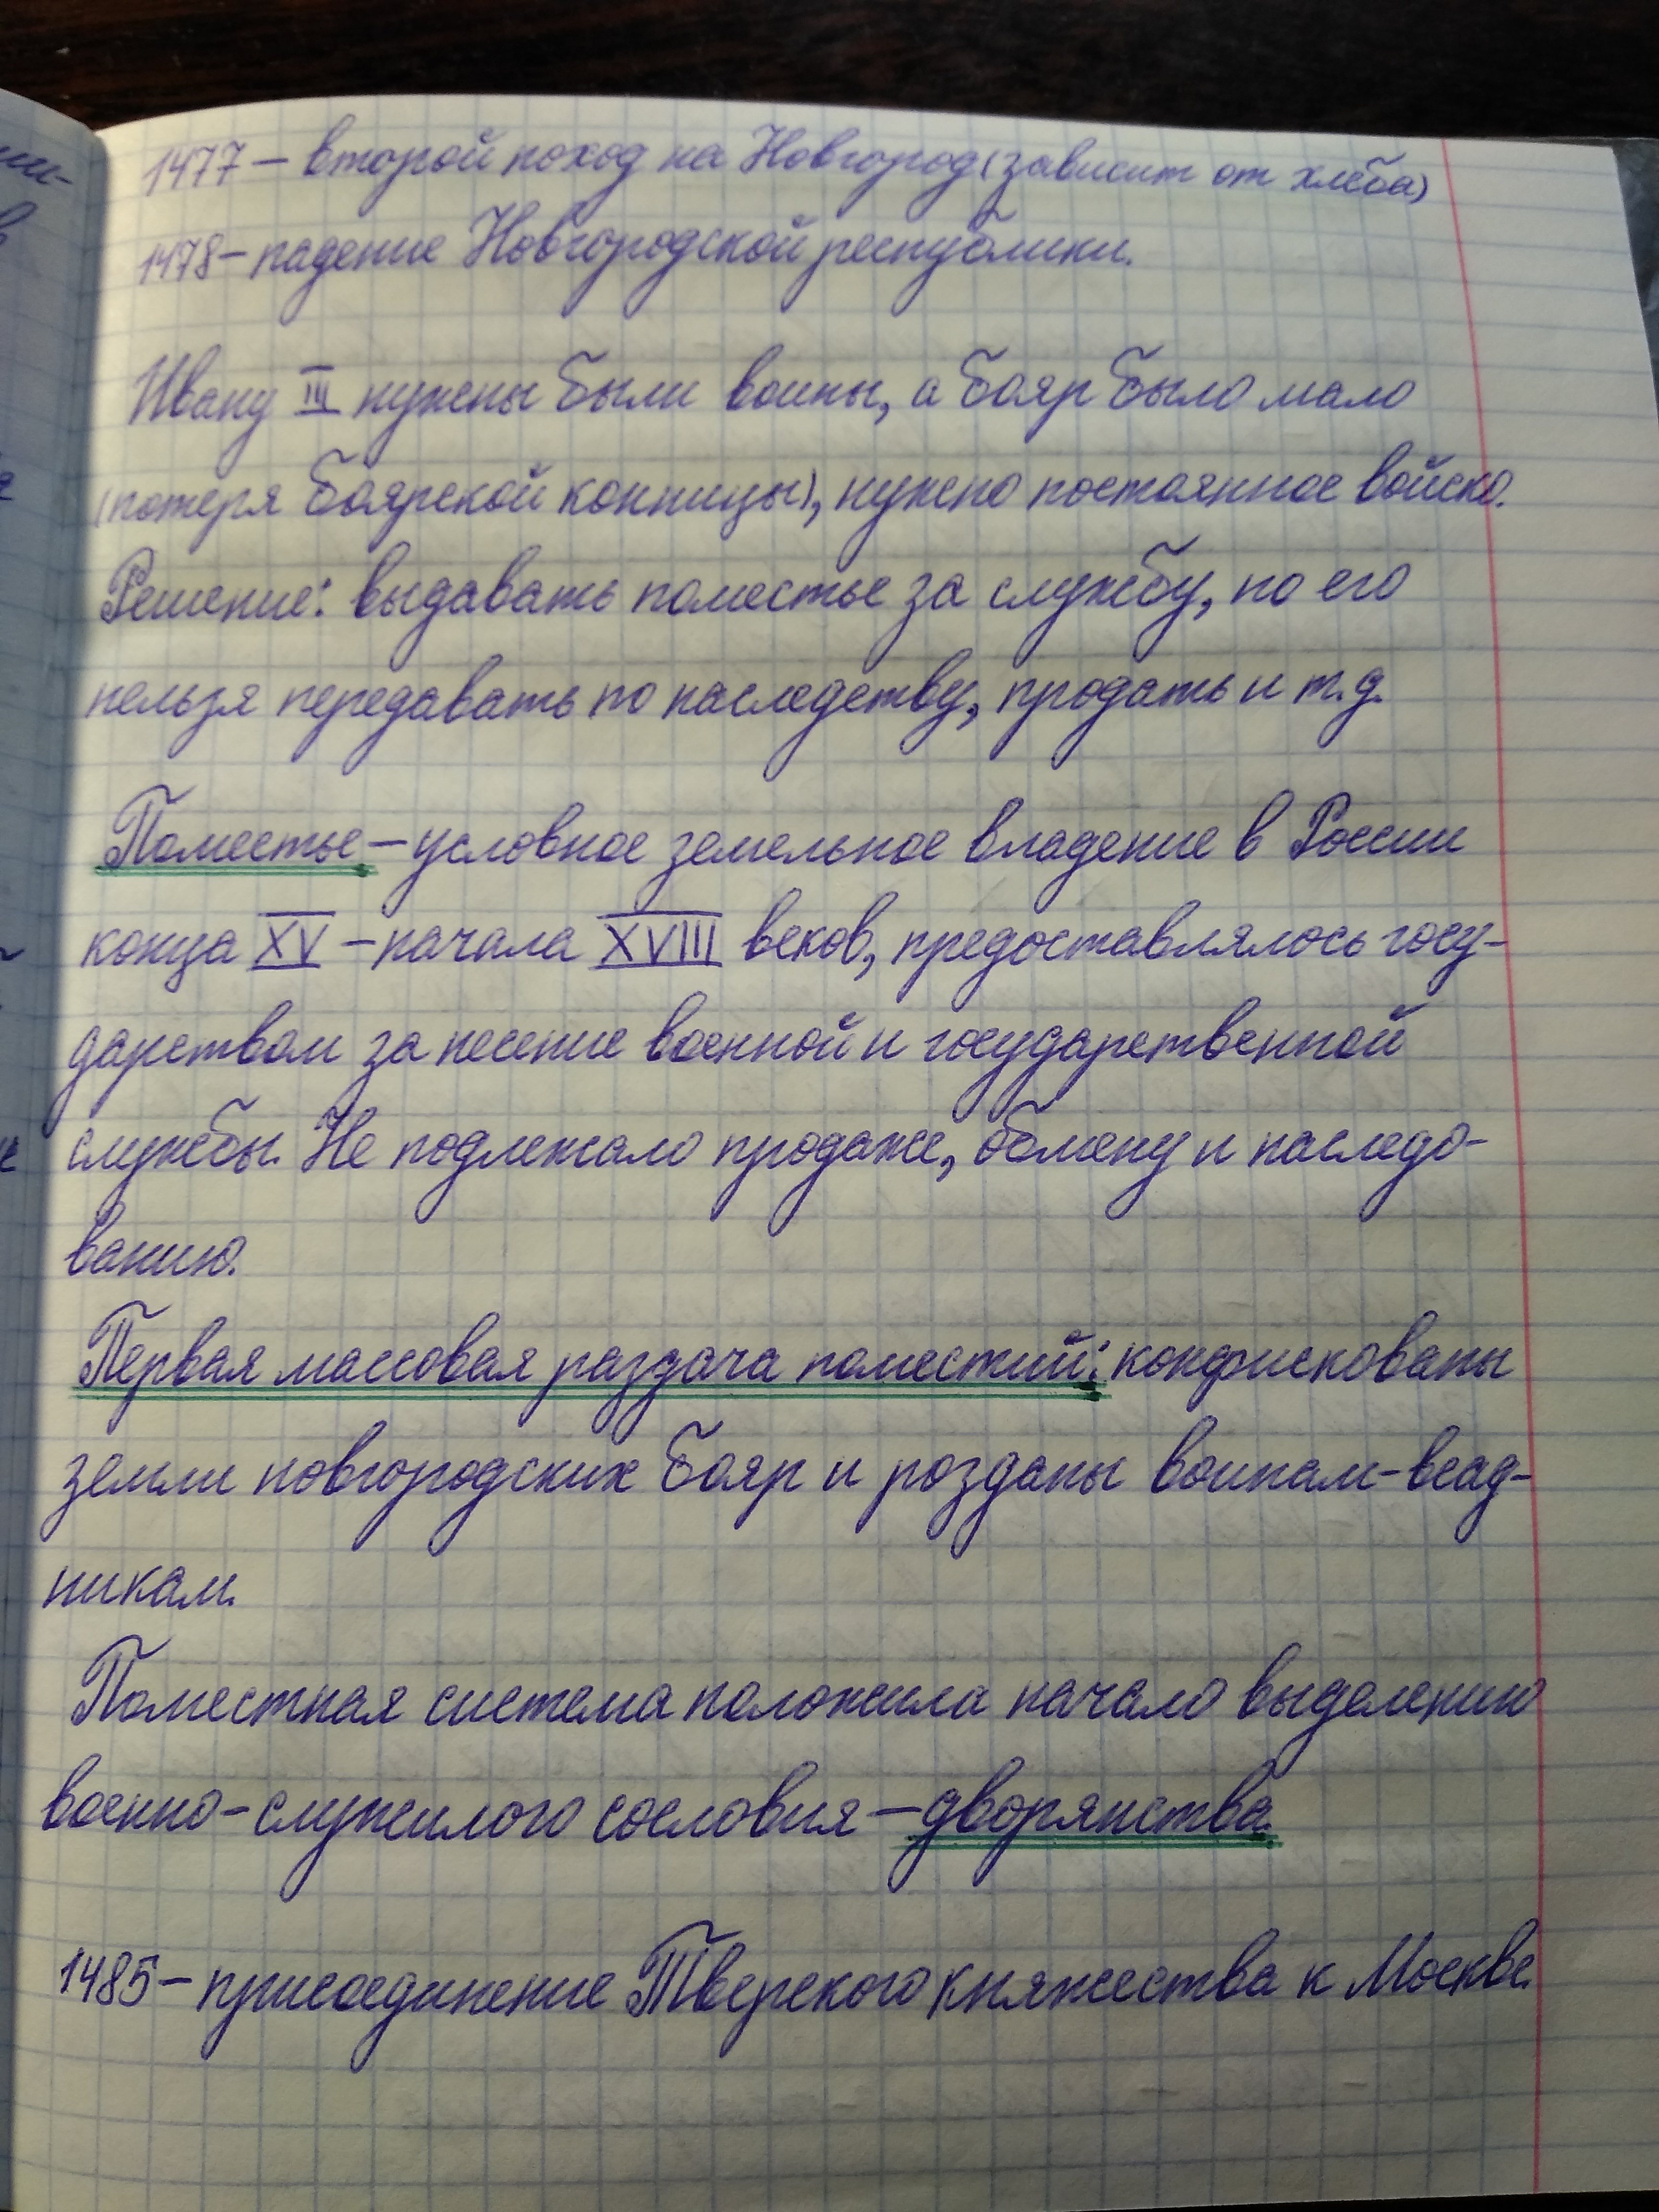 1477 – второй поход на Новгород (зависит от хлеба)
1478 – падение Новгородской республики.
Ивану III нужны были воины, а бояр было мало
(потеря боярской конницы), нужно постоянное войско.
Решение: выдавать поместье за службу, но его
нельзя передавать по наследству, продать и т.д.
Поместье – условное земельное владение в России
конца XV – начала XVIII веков, предоставлялось госу-
дарством за несение военной и государственной
службы. Не подлежало продаже, обмену и наследо-
ванию.
Первая массовая раздача поместий: конфискованы
земли новгородских бояр и розданы воинам-всад-
никам.
Поместная система положила начало выделению
военно-служилого сословия – дворянства.
1485 – присоединение Тверского княжества к Москве.